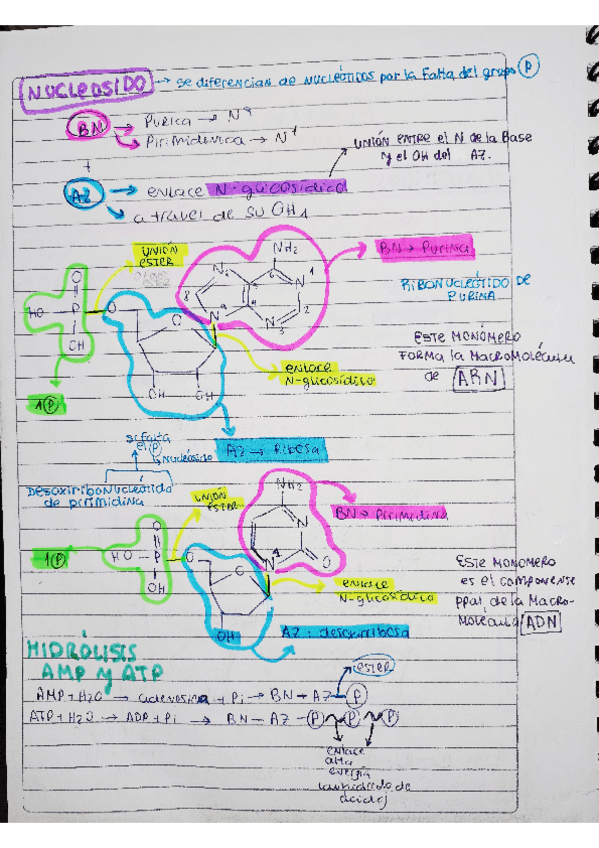 NUCLEOSIDO → se diferencian de NUCLEÓTIDOS por la falta del grupo P
BN → Purica → N9
→ Pirimidinica → N1
+
UNIÓN ENTRE el N de la Base
y el OH del AZ.
AZ → enlace N-glicosídico
→ a travel de su OH1
UNIÓN
ESTER
NH2
BN → Purina
RIBONUCLEÓTIDO DE
PURINA
N
6
N
1
8
2
9
N
N
3
O
HO
P
O
O
OH
ESTE MONÓMERO
FORMA la MACROMOLÉCULA
de ARN
enlace
N-glicosídico
OH
OH
1 P
si falta
el P
→ nucleósido
AZ → Ribosa
Desoxirribonucleótido
de pirimidina
UNIÓN
ESTER
NH2
BN → Pirimidina
N
O
1 P
HO
P
O
O
N
1
O
OH
ESTE MONOMERO
es el componente
ppal, de la Macro-
molécula ADN
enlace
N-glicosídico
OH
AZ: desoxirribosa
HIDRÓLISIS
AMP y ATP
ester
AMP + H2O → adenosina + Pi → BN - AZ - P
ATP + H2O → ADP + Pi → BN - AZ - P ~ P ~ P
enlace
alta
energía